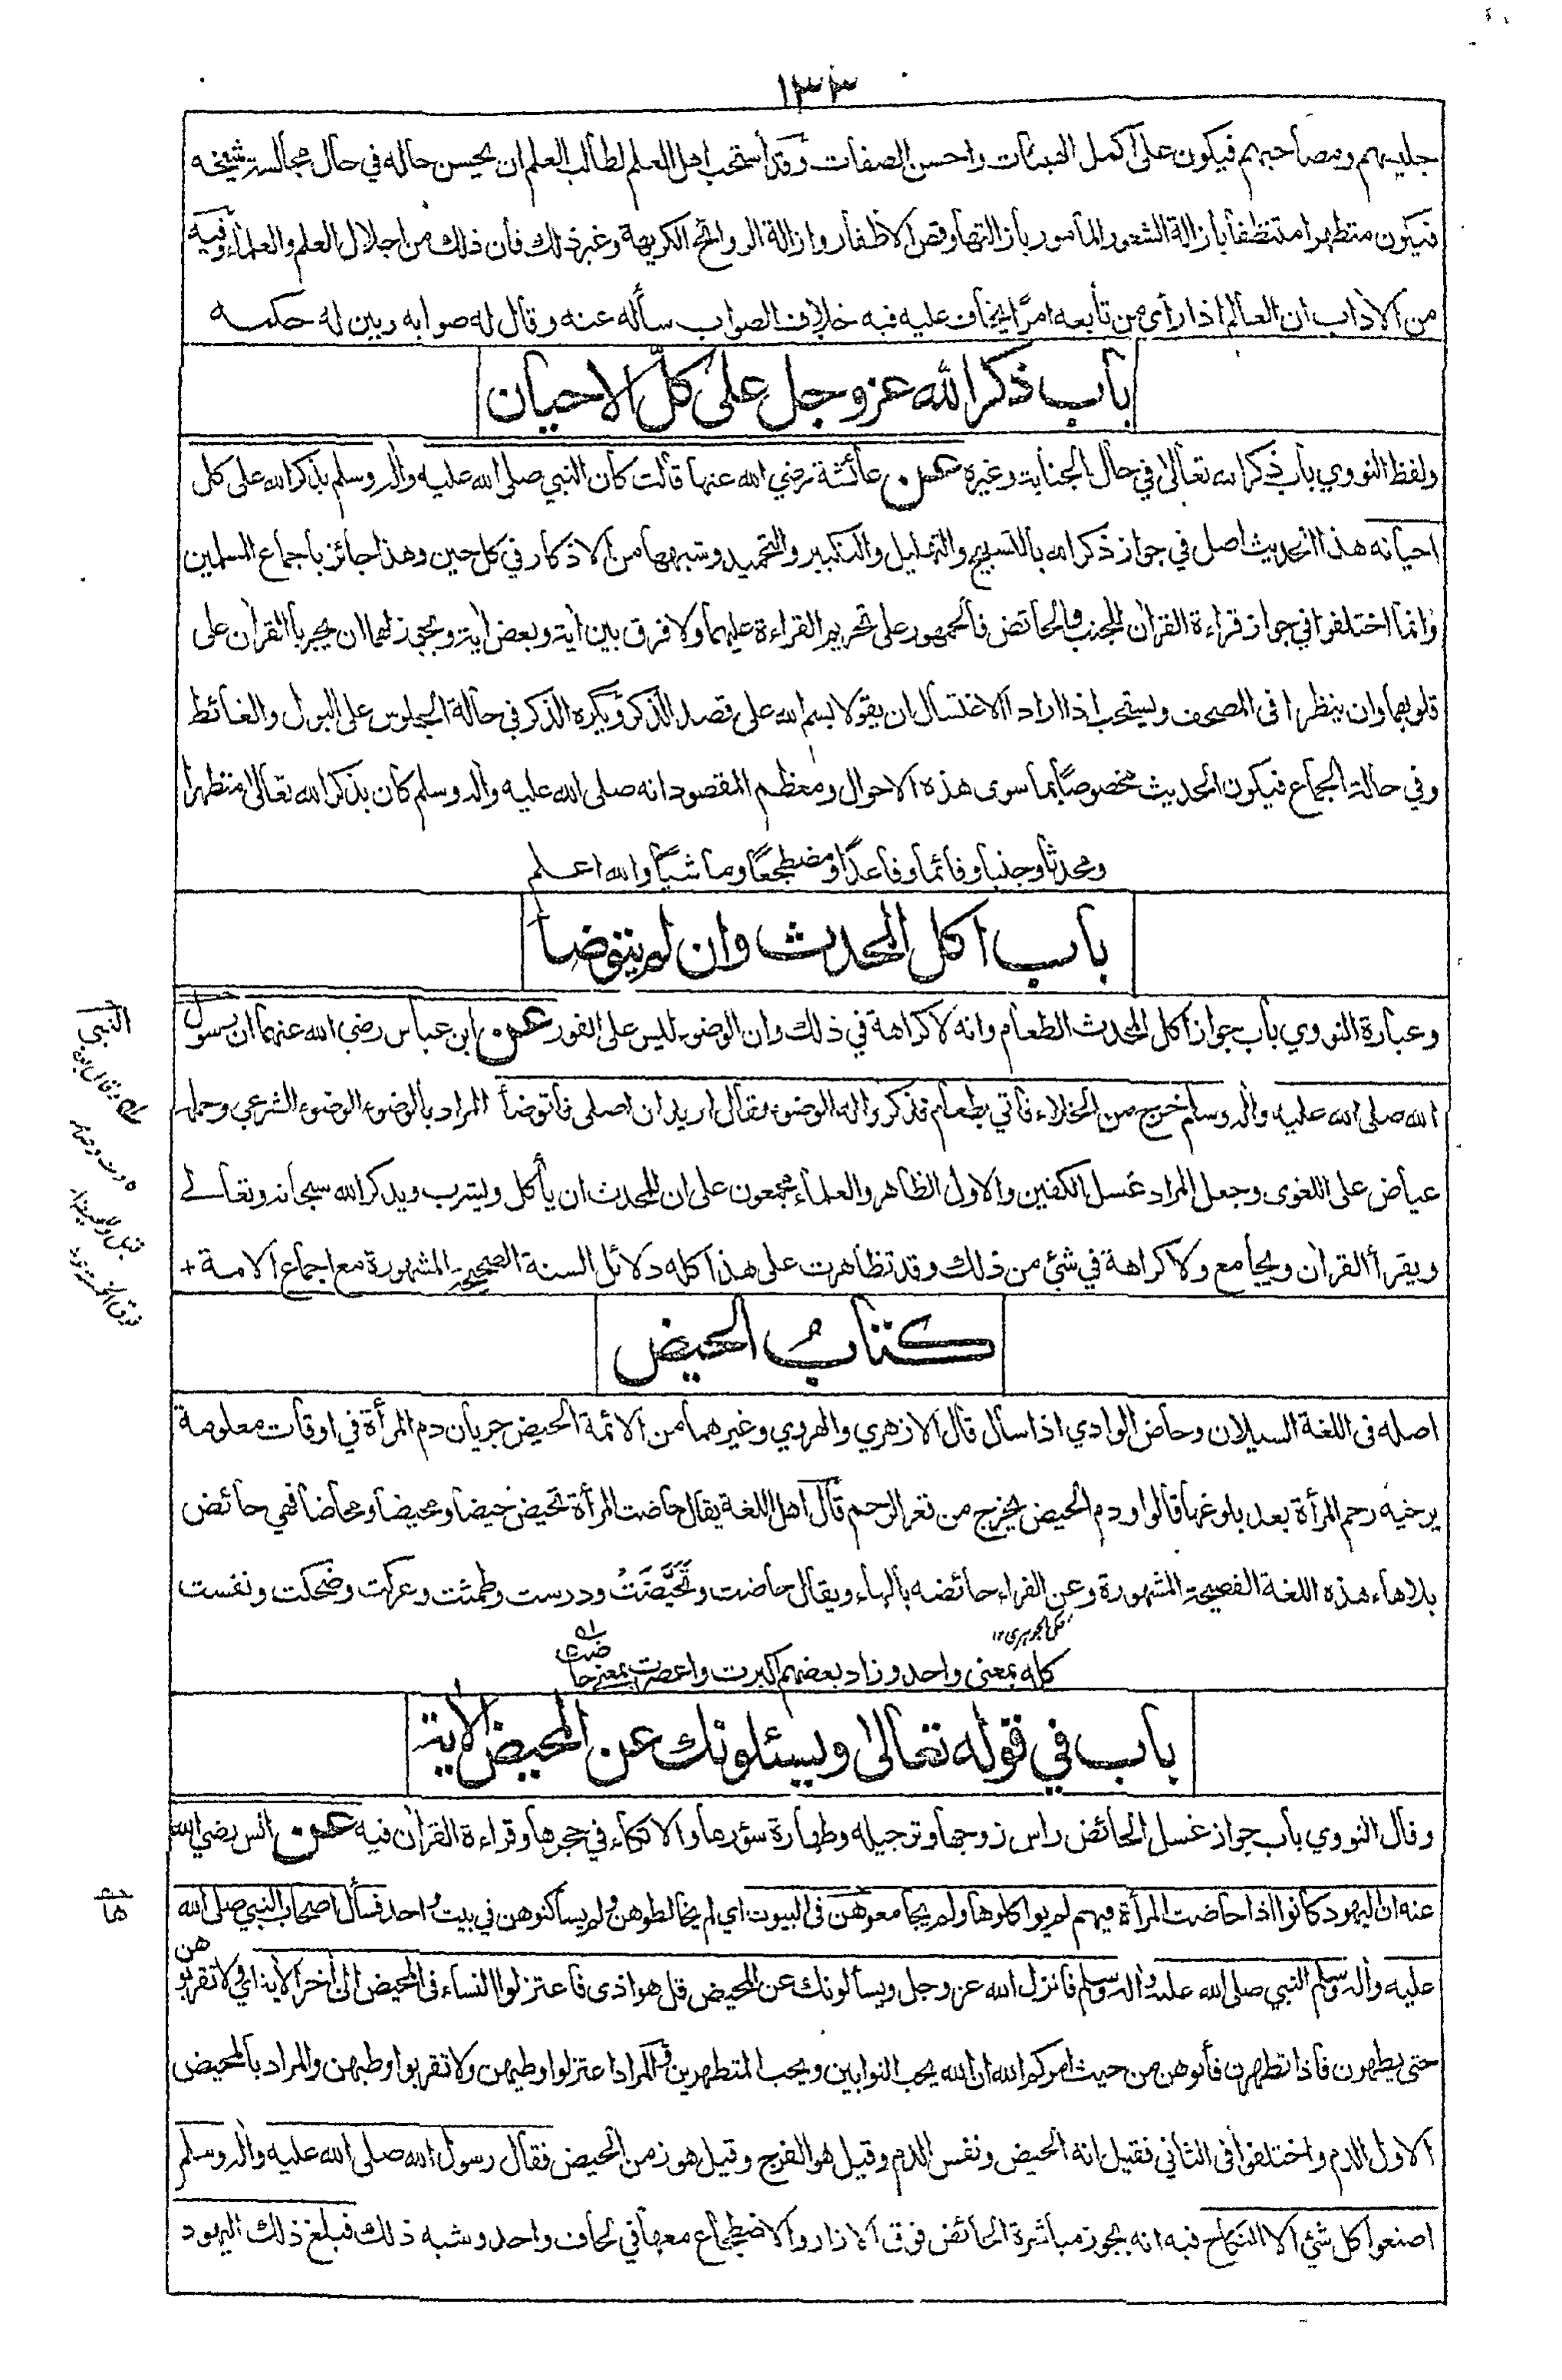 ١٣٣
جليسهم ومصاحبهم فيكون على اكمل الهيئات واحسن الصفات وقد استحب اهل العلم لطالب العلم ان يحسن حاله في حال مجالسة شيخه
فيكون متطهرا متنظفا بازالة الشعور المأمور بازالتها وقص الاظفار وازالة الروائح الكريهة وغير ذلك فان ذلك من اجلال العلم والعلماء وفيه
من الآداب ان العالم اذا رأى من تابعه امرًا يخاف عليه فيه خلاف الصواب سأله عنه وقال له صوابه وبين له حكمه
باب ذكر الله عز وجل على كلّ الاحيان
ولفظ النووي باب ذكر الله تعالى في حال الجنابة وغيره عن عائشة رضي الله عنها قالت كان النبي صلى الله عليه وآله وسلم يذكر الله على كل
احيانه هذا الحديث اصل في جواز ذكر الله بالتسبيح والتهليل والتكبير والتحميد وشبهها من الاذكار في كل حين وهذا جائز باجماع المسلمين
وانما اختلفوا في جواز قراءة القرآن للجنب والحائض فالجمهور على تحريم القراءة عليهما ولا فرق بين آية وبعض آية ويجوز لهما ان يجريا القرآن على
قلوبهما وان ينظرا في المصحف ويستحب اذا ارادا الاغتسال ان يقولا بسم الله على قصد الذكر ويكره الذكر في حالة الجلوس على البول والغائط
وفي حالة الجماع فيكون الحديث مخصوصًا بما سوى هذه الاحوال ومعظم المقصود انه صلى الله عليه وآله وسلم كان يذكر الله تعالى متطهرا
ومحدثا وجنبا وقائما وقاعدًا ومضطجعًا وماشيًا والله اعلم
باب اكل المحدث وان لم يتوضأ
وعبارة النووي باب جواز اكل المحدث الطعام وانه لا كراهة في ذلك وان الوضوء ليس على الفور عن ابن عباس رضي الله عنهما ان رسول
النبي
الله صلى الله عليه وآله وسلم خرج من الخلاء فأتي بطعام فذكروا له الوضوء فقال اريد ان اصلي فأتوضأ المراد بالوضوء الوضوء الشرعي وحمله
عياض على اللغوى وجعل المراد غسل الكفين والاول الظاهر والعلماء مجمعون على ان للمحدث ان يأكل ويشرب ويذكر الله سبحانه وتعالى
ويقرأ القرآن ويجامع ولا كراهة في شئ من ذلك وقد تظاهرت على هذا كله دلائل السنة الصحيحة المشهورة مع اجماع الامة +
كتابُ الحيض
اصله في اللغة السيلان وحاض الوادي اذا سال قال الازهري والهروي وغيرهما من الائمة الحيض جريان دم المرأة في اوقات معلومة
يرخيه رحم المرأة بعد بلوغها قالوا ودم الحيض يخرج من قعر الرحم قال اهل اللغة يقال حاضت المرأة تحيض حيضا ومحيضا ومحاضا فهي حائض
بلا هاء هذه اللغة الفصيحة المشهورة وعن الفراء حائضه بالهاء ويقال حاضت وتَحَيَّضَتْ ودرست وطمثت وعركت وضحكت ونفست
كله بمعنى واحد وزاد بعضهم اكبرت واعصرت بمعنى حاضت
باب في قوله تعالى ويسئلونك عن المحيض الآية
وقال النووي باب جواز غسل الحائض راس زوجها وترجيله وطهارة سؤرها والاتكاء في حجرها وقراءة القرآن فيه عن انس رضي الله
عنه ان اليهود كانوا اذا حاضت المرأة فيهم لم يواكلوها ولم يجامعوهن في البيوت اي لم يخالطوهن ولم يساكنوهن في بيت واحد فسأل اصحاب النبي صلى الله
عليه وآله وسلم النبي صلى الله عليه وآله وسلم فانزل الله عز وجل ويسألونك عن المحيض قل هو اذى فاعتزلوا النساء في المحيض الى آخر الآية اي ولا تقربوهن
حتى يطهرن فاذا تطهرن فأتوهن من حيث امركم الله ان الله يحب التوابين ويحب المتطهرين والمراد اعتزلوا وطيهن ولا تقربوا وطيهن والمراد بالمحيض
الاول الدم واختلفوا في الثاني فقيل انه الحيض ونفس الدم وقيل هو الفرج وقيل هو زمن الحيض فقال رسول الله صلى الله عليه وآله وسلم
اصنعوا كل شئ الا النكاح فيه انه يجوز مباشرة الحائض فوق الازار والاضطجاع معها في لحاف واحد وشبه ذلك فبلغ ذلك اليهود